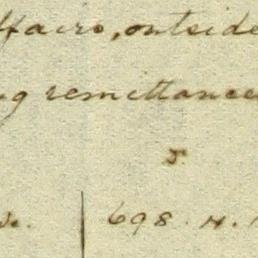 ffairs, outside
ng remittances
5.
698. H.